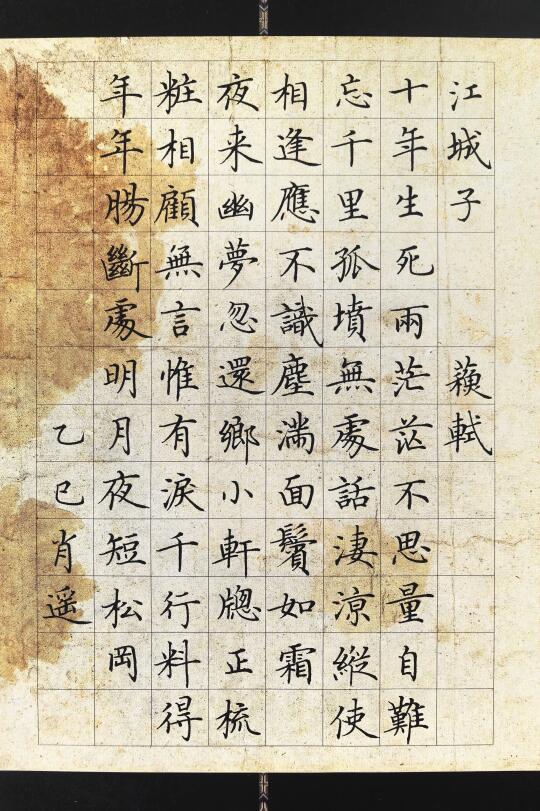 江城子 蘓軾
十年生死兩茫茫不思量自難
忘千里孤墳無處話淒涼縱使
相逢應不識塵滿面鬢如霜
夜来幽夢忽還鄉小軒牕正梳
粧相顧無言惟有淚千行料得
年年腸斷處明月夜短松岡
乙巳肖遥